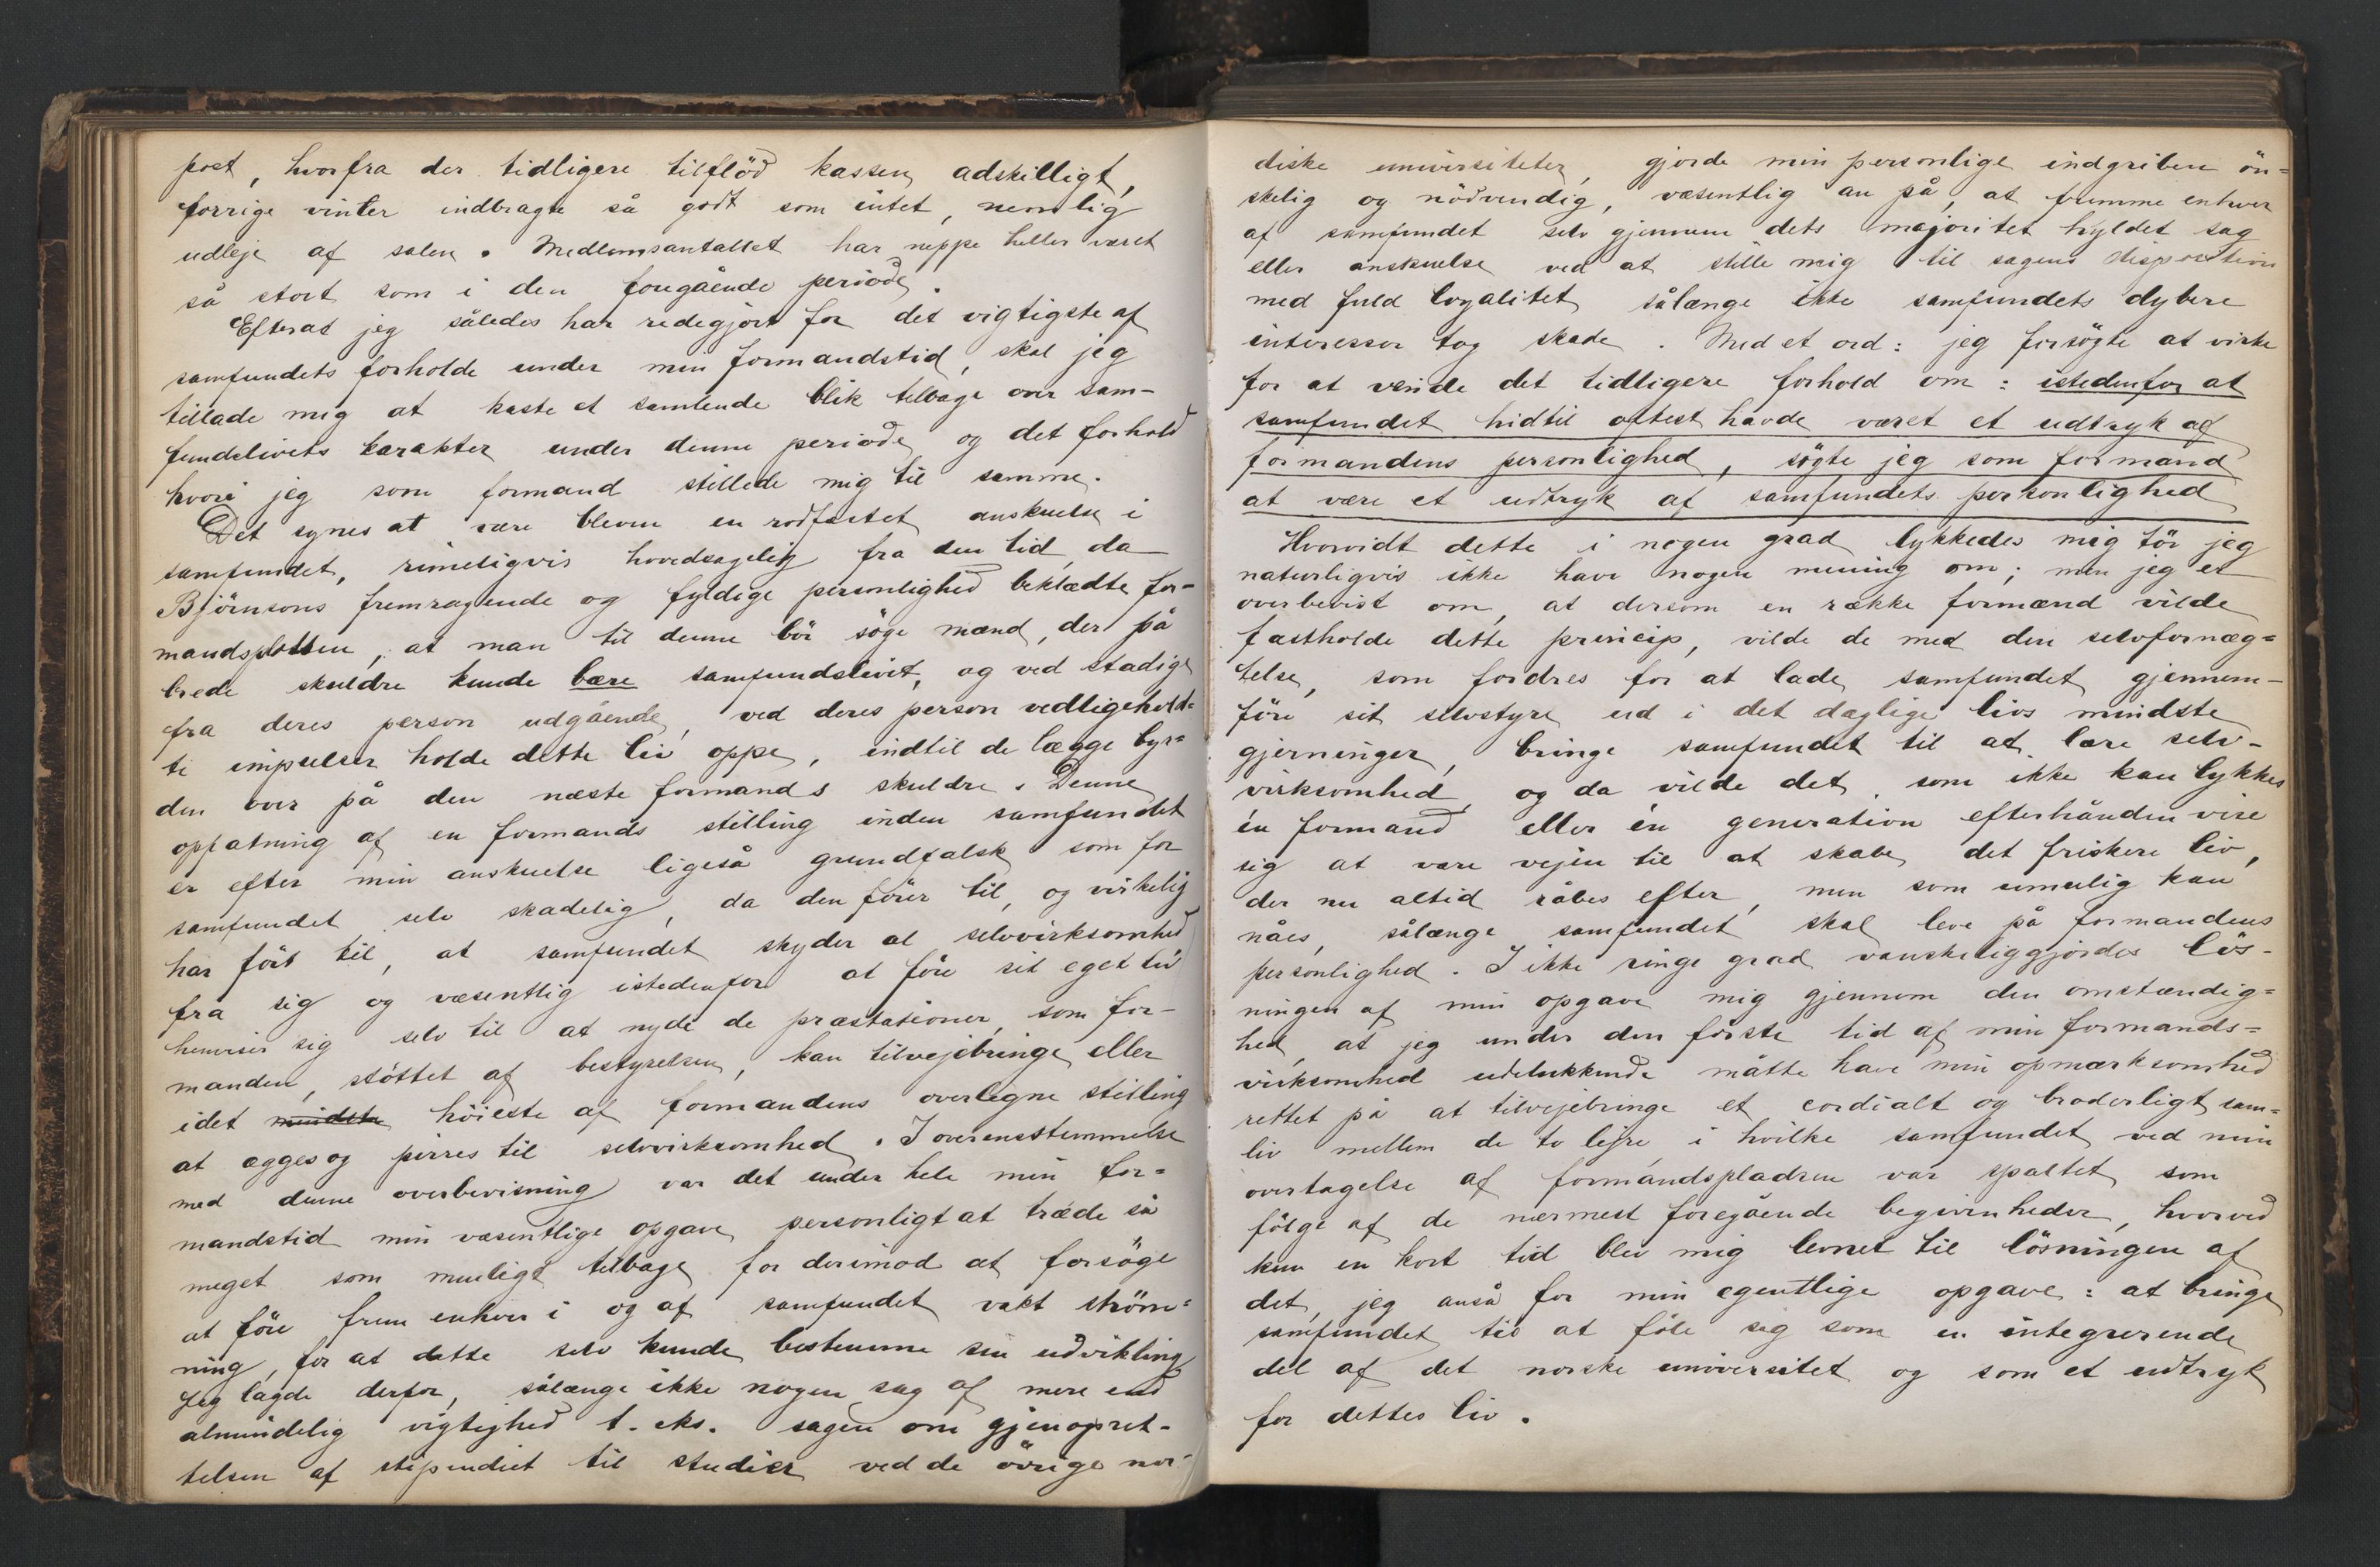 post, hvorfra der tidligere tilflöd kassen adskilligt,
forrige vinter indbragte så godt som intet, nemlig
udleje af salen. Medlemsantallet har neppe heller været
så stort som i den foregående periode.
Efterat jeg således har redegjort for det vigtigste af
samfundets forholde under min formandstid, skal jeg
tillade mig at kaste et samlende blik tilbage over sam-
fundslivets karakter under denne periode og det forhold
hvori jeg som formand stillede mig til samme.
Det synes at være bleven en rodfæstet anskuelse i
samfundet, rimeligvis hovedsagelig fra den tid, da
Björnsons fremragende og fyldige personlighed beklædte for=
mandsposten, at man til denne bör söge mænd, der på
brede skuldre kunde bære samfundslivet, og ved stadige
fra deres person udgående, ved deres person vedligehold=
te impulser holde dette liv oppe, indtil de lægge byr=
den over på den næste formands skuldre. Denne
opfatning af en formands stilling inden samfundet
er efter min anskuelse ligeså grundfalsk som for
samfundet selv skadelig, da den förer til, og virkelig
har fört til, at samfundet skyder al selvvirksomhed
fra sig og væsentlig istedenfor at före sit eget liv
henviser sig selv til at nyde de præstationer, som for-
manden, stöttet af bestyrelsen, kan tilvejebringe eller
idet mindste höieste af formandens overlegne stilling
at ægges og pirres til selvvirksomhed. I overensstemmelse
med denne overbevisning var det under hele min for=
mandstid min væsentlige opgave personligt at træde så
meget som muligt tilbage for derimod at forsöge
at före frem enhver i og af samfundet vakt ström=
ning, for at dette selv kunde bestemme sin udvikling
Jeg lagde derfor, sålænge ikke nogen sag af mere end
almindelig vigtighed t. eks. sagen om gjenopret-
telsen af stipendiet til studier ved de övrige nor=
diske universiteter, gjorde min personlige indgriben ön=
skelig og nödvendig, væsentlig an på, at fremme enhver
af samfundet selv gjennem dets majoritet hyldet sag
eller anskuelse ved at stille mig til sagens disposition
med fuld loyalitet sålænge ikke samfundets dybere
interesser tog skade. Med et ord: jeg forsögte at virke
for at vende det tidligere forhold om: istedenfor at
samfundet hidtil oftest havde været et udtryk af
formandens personlighed, sögte jeg som formand
at være et udtryk af samfundets personlighed
Hvorvidt dette i nogen grad lykkedes mig tör jeg
naturligvis ikke have nogen mening om; men jeg er
overbevist om, at dersom en række formænd vilde
fastholde dette princip, vilde de med den selvfornæg=
telse, som fordres for at lade samfundet gjennem-
före sit selvstyre ud i det daglige livs mindste
gjerninger, bringe samfundet til at lære selv-
virksomhed, og da vilde det, som ikke kan lykkes
én formand eller én generation efterhånden vise
sig at være vejen til at skabe det friskere liv,
der nu altid råbes efter, men som umulig kan
nåes, sålænge samfundet skal leve på formandens
personlighed. I ikke ringe grad vanskeliggjordes lös-
ningen af min opgave mig gjennem den omstændig=
hed, at jeg under den förste tid af min formands=
virksomhed udelukkende måtte have min opmærksomhed
rettet på at tilvejebringe et cordialt og broderligt sam=
liv mellem de to lejre, i hvilke samfundet ved min
overtagelse af formandspladsen var spaltet som
fölge af de nærmest foregående begivenheder, hvorved
kun en kort tid blev mig levnet til lösningen af
det, jeg anså for min egentlige opgave: at bringe
samfundet til at föle sig som en integrerende
del af det norske universitet og som et udtryk
for dettes liv.